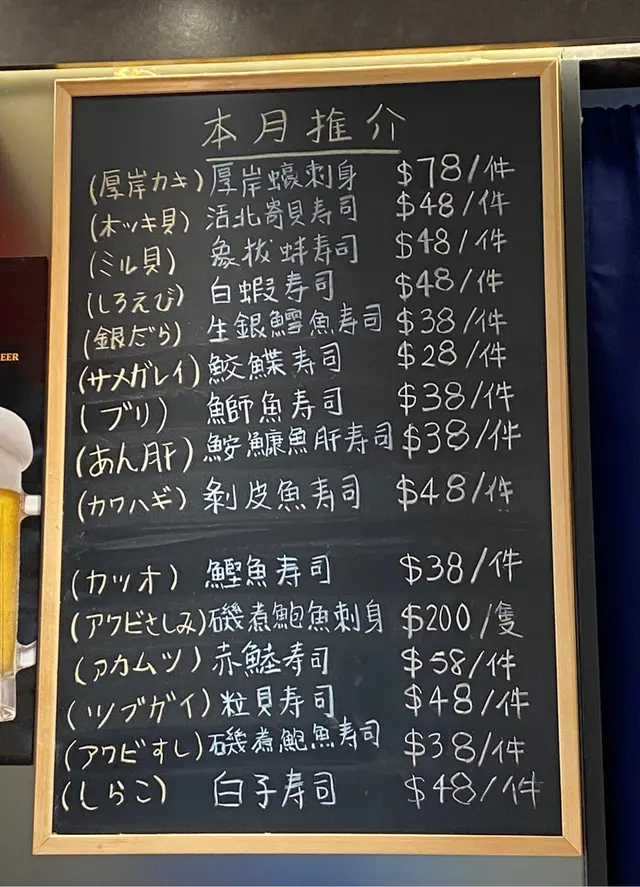 本月推介
(厚岸カキ) 厚岸蠔刺身 $78/件
(ホッキ貝) 活北寄貝寿司 $48/件
(ミル貝) 象拔蚌寿司 $48/件
(しろえび) 白蝦寿司 $48/件
(銀だら) 生銀鱈魚寿司 $38/件
(サメガレイ) 鮫鰈寿司 $28/件
(ブリ) 鰤魚寿司 $38/件
(あん肝) 鮟鱇魚肝寿司 $38/件
(カワハギ) 剝皮魚寿司 $48/件
(カツオ) 鰹魚寿司 $38/件
(アワビさしみ) 磯煮鮑魚刺身 $200/隻
(アカムツ) 赤鯥寿司 $58/件
(ツブガイ) 粒貝寿司 $48/件
(アワビすし) 磯煮鮑魚寿司 $38/件
(しらこ) 白子寿司 $48/件
EER